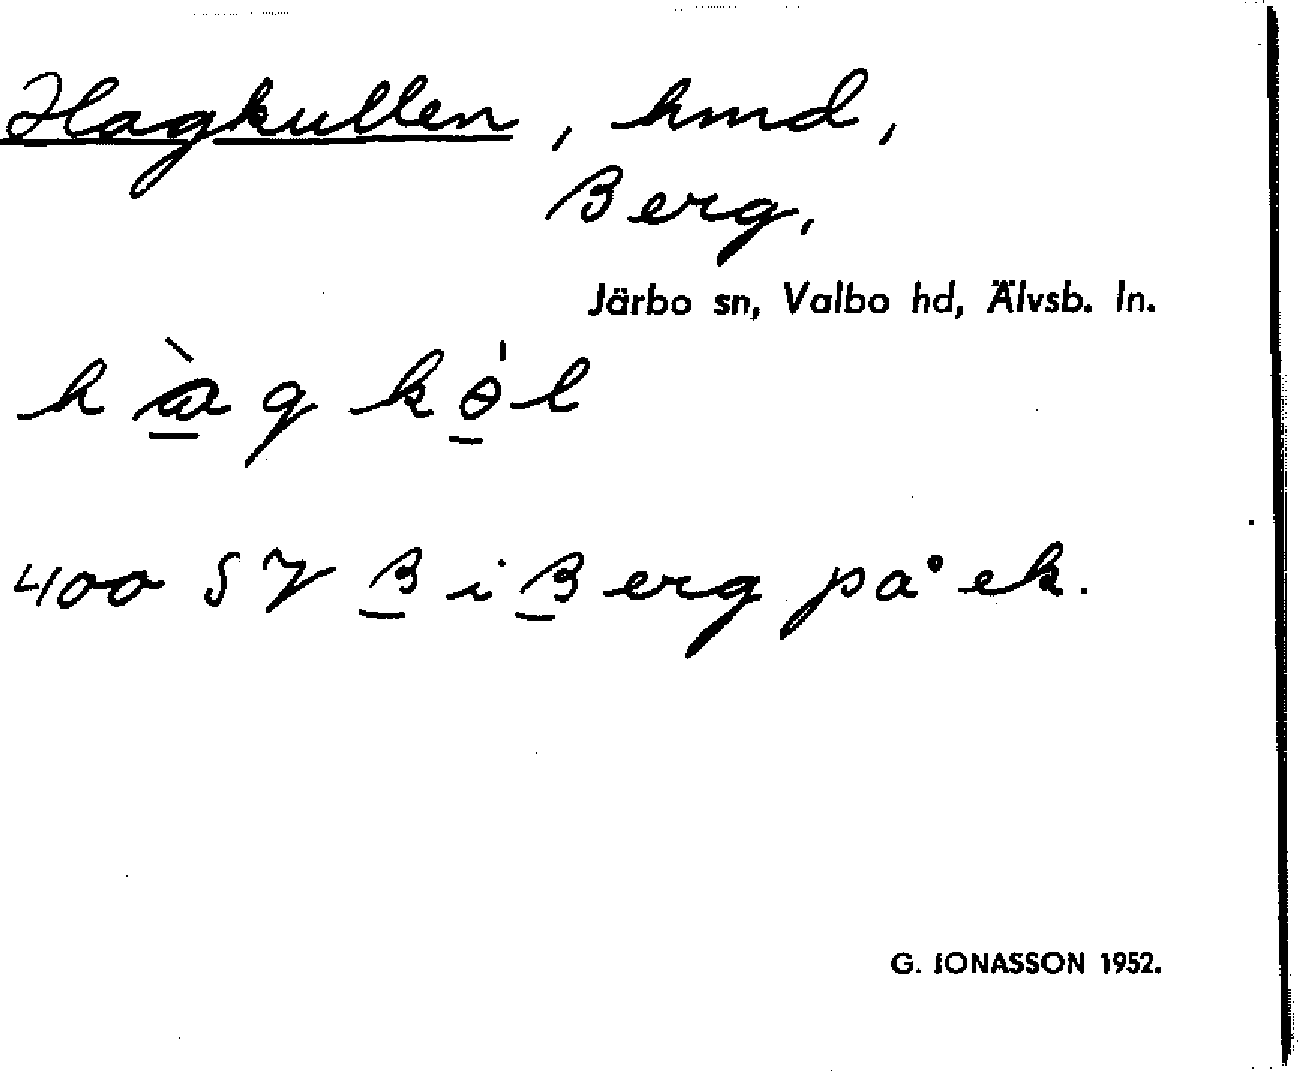 Hagkullen, hmd,
Berg,
Järbo sn, Valbo hd, Älvsb. ln.
hàgkɵ́l
400 SV B i Berg på ek.
G. JONASSON 1952.